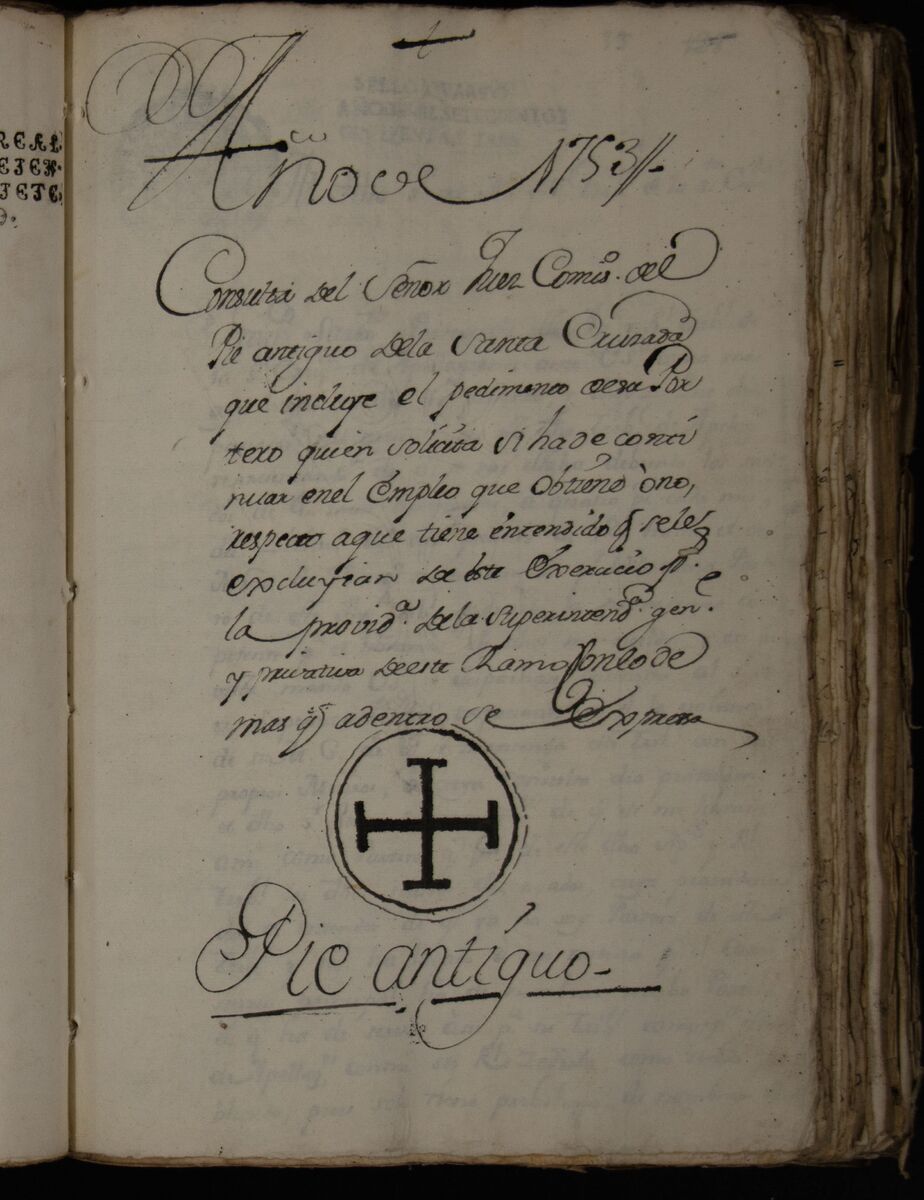 REAL
ETEN
TETE
Año de 1753//.
Consulta del Señor Juez Comis.º del
Pie antiguo dela Santa Cruzada
que incluye el pedimento de su Por
tero quien solicita si ha de conti
nuar en el Empleo que Obtiene ò no,
respecto aque tiene entendido q̃ seles
excluyian de este Exercicio pr.
la provid.ª dela Superintend.ª gen.e
y privativa deeste Ramo Con lo de
mas q̃ adentro se Expresa
Pie antiguo.